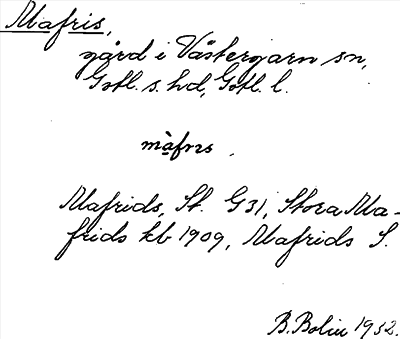 Mafris,
gård i Västergarn sn,
Gotl. s. hd, Gotl. l.
màfrıs.
Mafrids, St. G31, Stora Ma-
frids kb 1909, Mafrids S.
B. Bolin 1932.